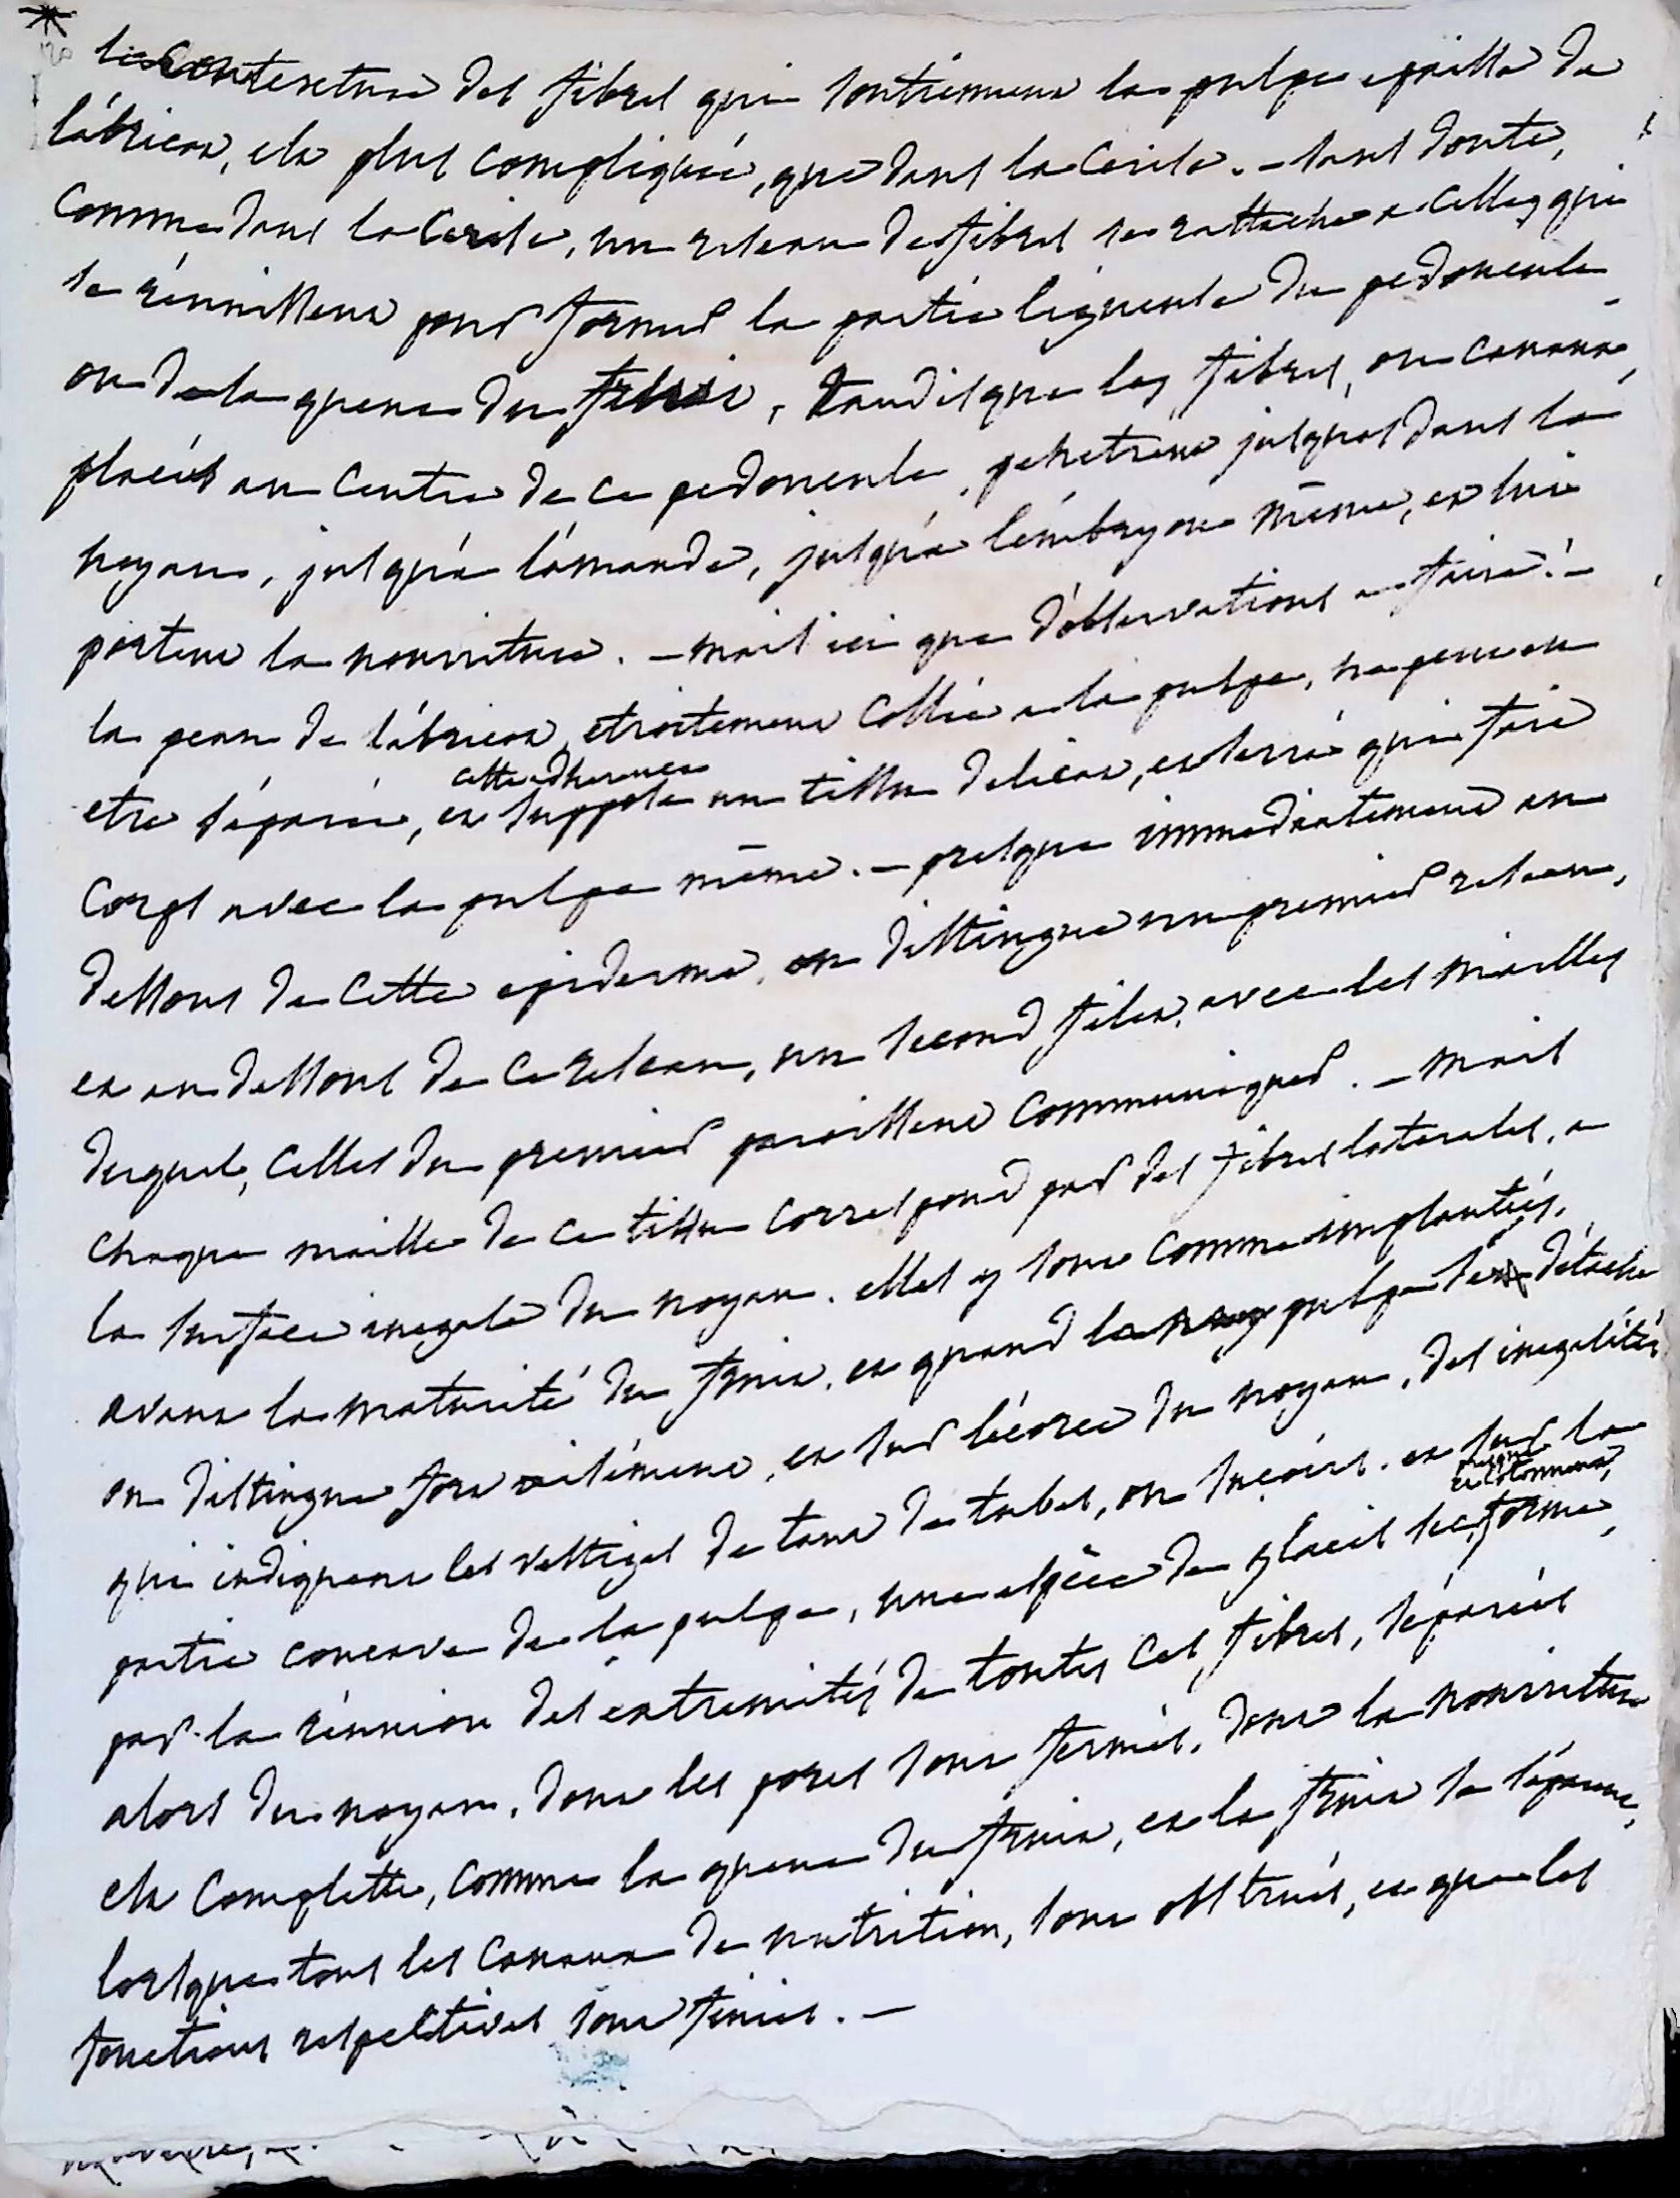 contexture des fibres qui soutiennent la pulpe epaisse de
l'abricot, est plus compliquée, que dans la Cerise. – sans doute,
Comme dans la Cerise, un reseau de fibres se rattache a celles qui
se réunissent pour former la partie ligneuse du pedoncule
ou de la queue du fruit, tandis que les fibres, ou canaux,
placés au centre de ce pedoncule, penetrent jusques dans le
noyau, jusqu'à l'amande, jusqu'à l'embryon même, et lui
portent la nourriture. – mais ici que d'observations a faire! –
la peau de l'abricot, etroitement collée a la pulpe, ne peut en
etre séparée, et
cette adherence
suppose un tissu delicat, et serré qui fait
Corps avec la pulpe même. – presque immediatement au
dessous de cette epiderme, on distingue un premier reseau,
et au dessous de ce reseau, un second filet, avec les mailles
duquel, celles du premier paraissent communiquer. – mais
chaque maille de ce tissu correspond par des fibres laterales, a
la surface inegale du noyau. elles y sont comme implantées,
avant la maturité du fruit, et quand la pulpe s'en détache
on distingue fort aisément, et sur l'écorce du noyau, des inegalités
qui indiquent les vestiges de tant de tubes, ou suçoirs. et sur la
partie concave de la pulpe, une espèce de glacis sec,
et cotonneux,
formé,
par la réunion des extremités de toutes ces fibres, séparées
alors du noyau, dont les pores sont fermés, dont la nourriture
est complette, comme la queue du fruit, et le fruit se séparent,
lorsque tous les canaux de nutrition, sont obstrués, et que les
fonctions respectives sont finies. –